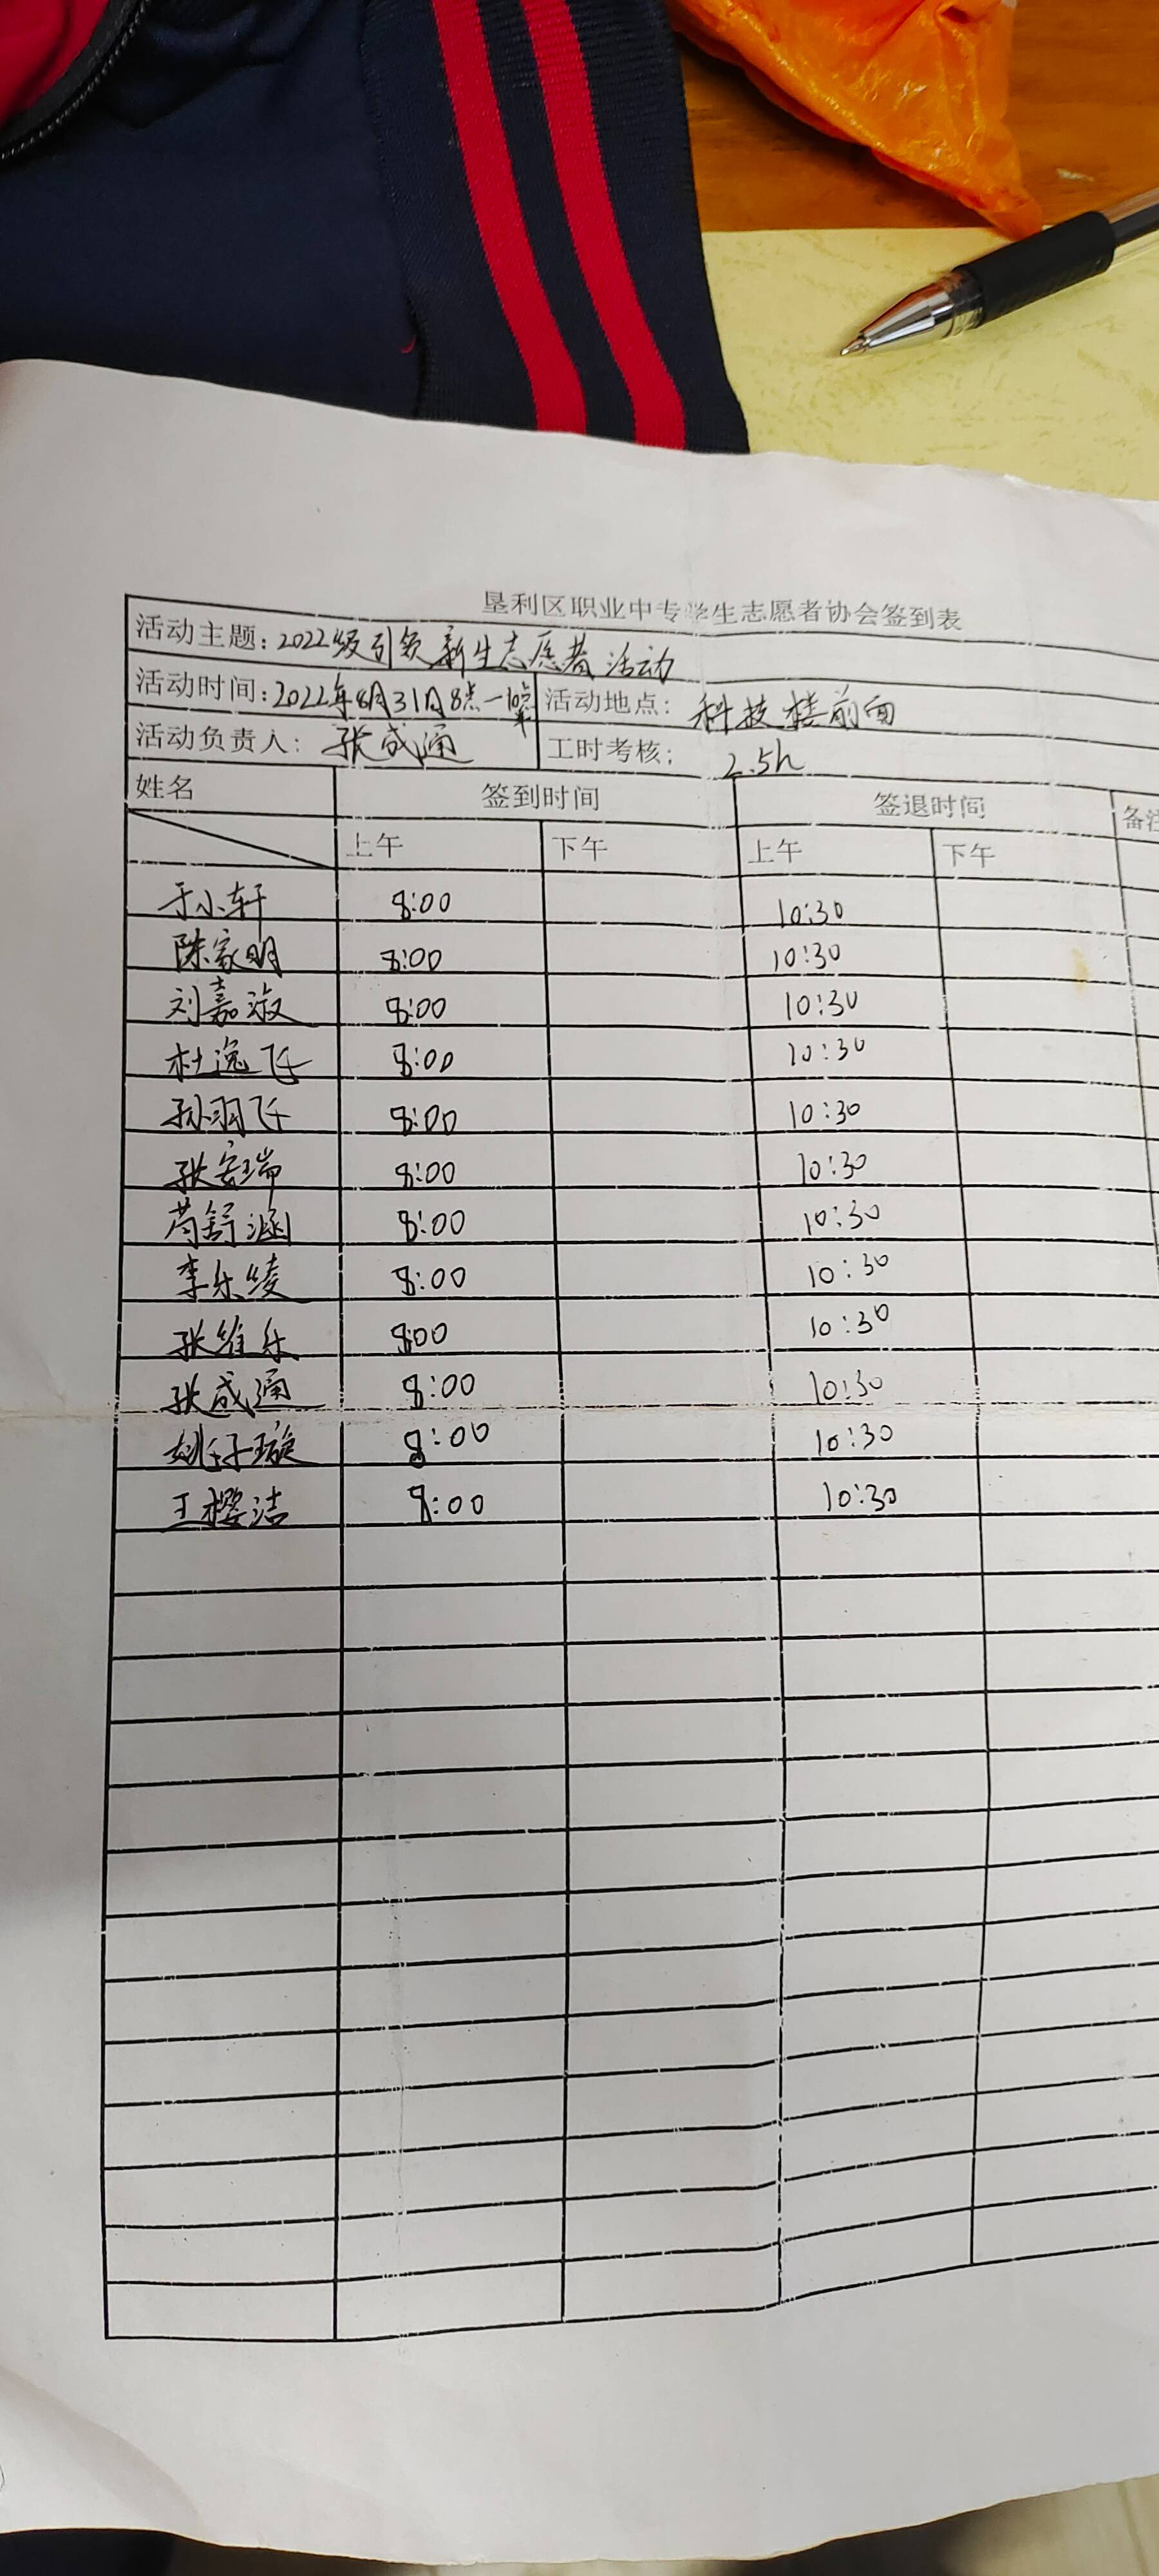 垦利区职业中专学生志愿者协会签到表
活动主题：2022级引领新生志愿者活动
活动时间：2022年8月31日8点—10点半 活动地点：科技楼前面
活动负责人：张成通 工时考核：2.5h
姓名 签到时间 签退时间 备注
上午 下午 上午 下午
于小轩 8:00 10:30
陈家明 8:00 10:30
刘嘉淑 8:00 10:30
杜逸飞 8:00 10:30
孙羽飞 8:00 10:30
张宏瑞 8:00 10:30
苟舒涵 8:00 10:30
李乐绫 8:00 10:30
张维乐 8:00 10:30
张成通 8:00 10:30
姚子璇 8:00 10:30
王樱洁 8:00 10:30